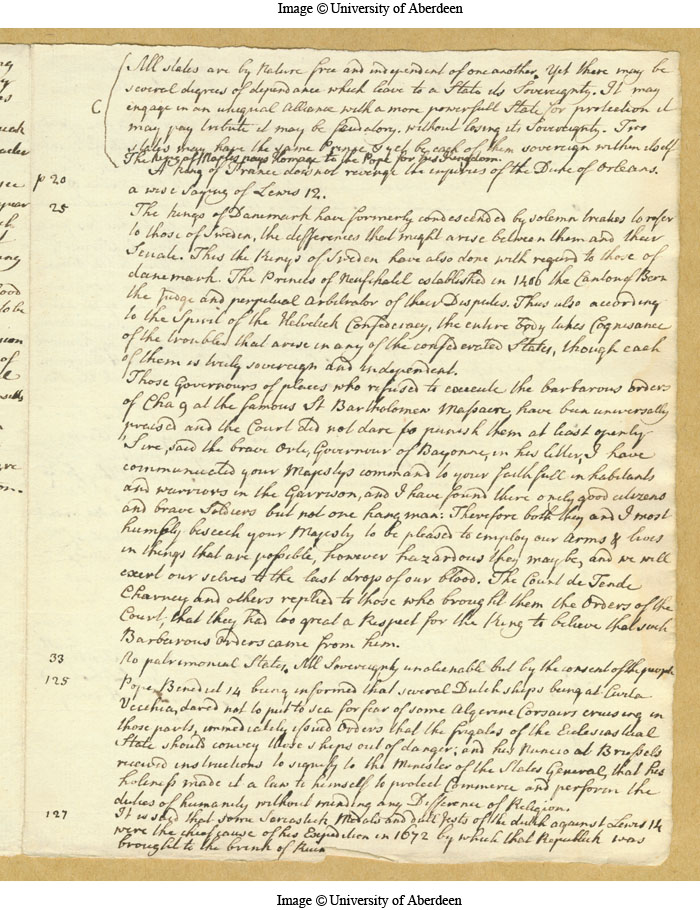 Image © University of Aberdeen
All states are by Nature free and independent of one another. Yet there may be
several degrees of dependance which leave to a State its Sovereignty. It may
C engage in an unequal Alliance with a more powerfull State for protection it
may pay tribute it may be feudatory. without losing its Sovereignty. Two
states may have the same Prince & yet be each of them sovereign within itself
The King of Naples pays homage to the Pope for his Kingdom.
p 20 A King of France does not revenge the injuries of the Duke of Orleans.
a wise Saying of Lewis 12.
25 The Kings of Danemark have formerly condescended by solemn treaties to refer
to those of Sweden, the differences that might arise between them and their
Senate. This the Kings of Sweden have also done with regard to those of
danemark. The Princes of Neufchatel established in 1406 the Canton of Bern
the Judge and perpetual Arbitrator of their Disputes. Thus also according
to the Spirit of the Helvetick Confederacy, the entire body takes Cognisance
of the troubles that arise in any of the confederated States, though each
of them is truly sovereign and independent.
Those Governours of places who refused to execute the barbarous orders
of Cha 9 at the famous St Bartholomew Massacre, have been universally
praised and the Court did not dare to punish them at least openly
Sire, said the brave Orte, Governour of Bayonne, in his letter, I have
communicated your Majestys command to your faithfull inhabitants
and warriors in the Garrison, and I have found there only good citizens
and brave Soldiers but not one hangman: Therefore both they and I most
humbly beseech your Majesty to be pleased to employ our Arms & lives
in things that are possible, however hazardous they may be, and we will
exert our selves to the last drop of our blood. The Count de Tende
Charney and others replied to those who brought them the Orders of the
Court, that they had too great a Respect for the King to believe that such
Barbarous Orders came from him.
33 No patrimonial States. All Sovereignty unalienable but by the consent of the people
125 Pope Benedict 14 being informed that several Dutch ships being at Civita
Vecchia, dared not to put to sea for fear of some Algerine Corsairs cruising in
those parts, immediately issued Orders that the frigates of the Eclesiastical
State should convey those ships out of danger; and his Nuncio at Brussels
received instructions to signify to the Minister of the States General, that his
holiness made it a law to himself to protect Commerce and perform the
duties of humanity without minding any Difference of Religion.
127 It is said that some Sarcastick Medals and dull Jests of the dutch against Lewis 14
were the chief cause of his Expedition in 1672 by which that Republick was
brought to the brink of Ruin
Image © University of Aberdeen